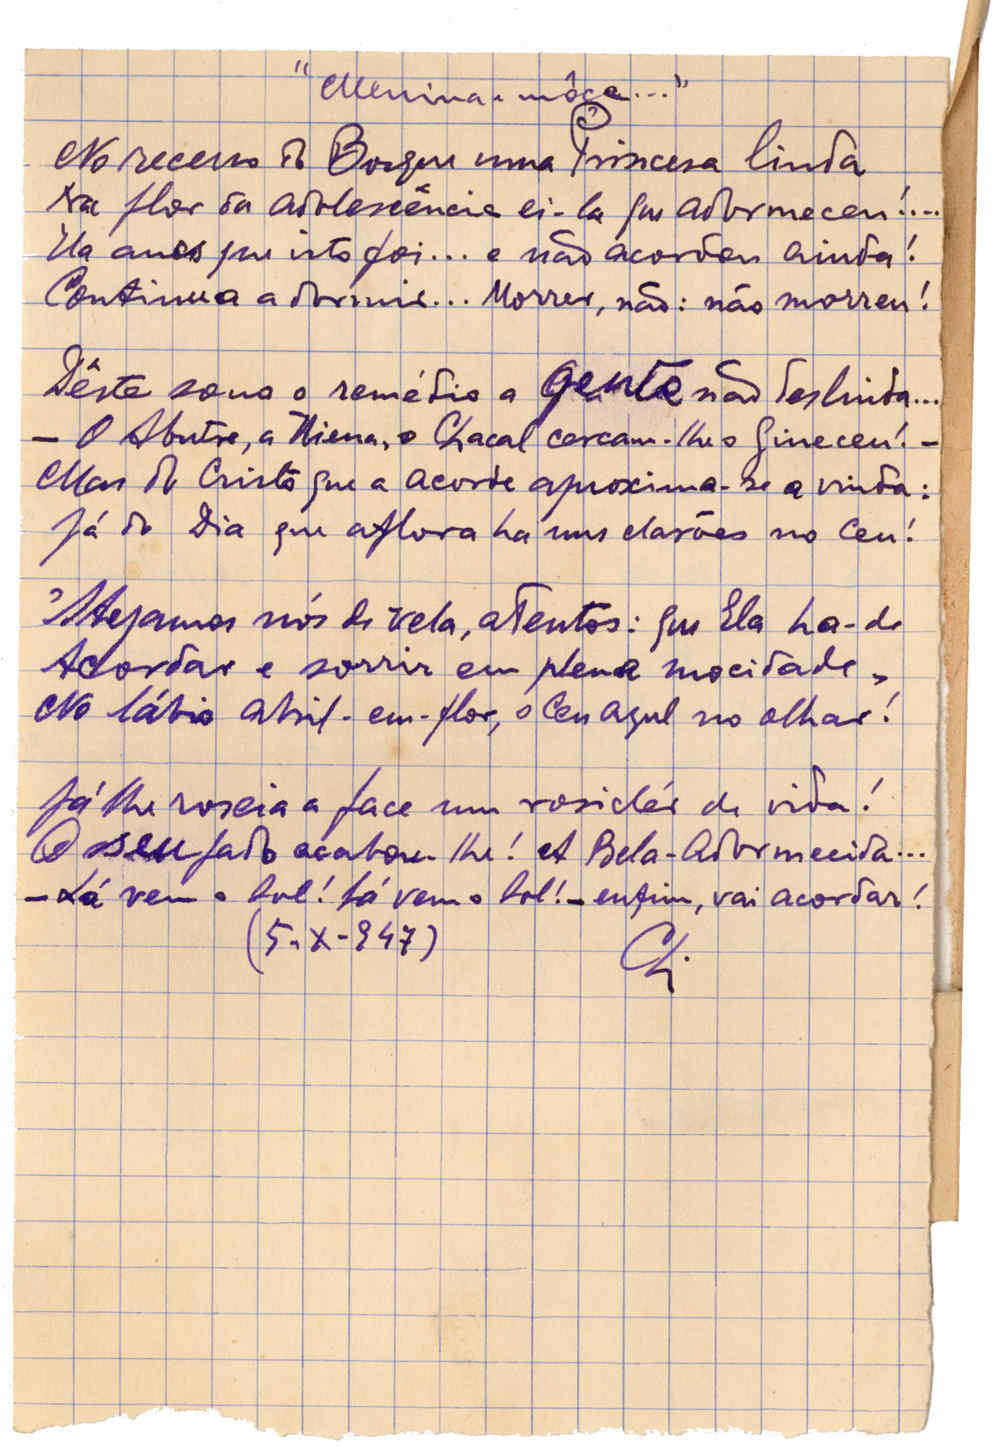 "Menina e môça..."
No recesso do Bosque uma Princesa linda
Na flor da adolescência ei-la que adormeceu!...
Ha anos que isto foi... e não acordou ainda!
Continua a dormir... Morrer, não: não morreu!
Dêste sono o remédio a gente não deslinda...
— O Abutre, a Hiena, o Chacal cercam-lhe o gineceu! —
Mas do Cristo que a acorde aproxima-se a vinda:
Já do Dia que aflora ha uns clarões no Ceu!
Stejamos nós de vela, atentos: que Ela ha-de
Acordar e sorrir em plena mocidade,
No lábio abril-em-flor, o Ceu azul no olhar!
Já lhe roseia a face um rosicler de vida!
O seu fado acabou-lhe! A Bela-Adormecida...
— Lá vem o Sol! Lá vem o Sol! — enfim, vai acordar!
(5-X-947)